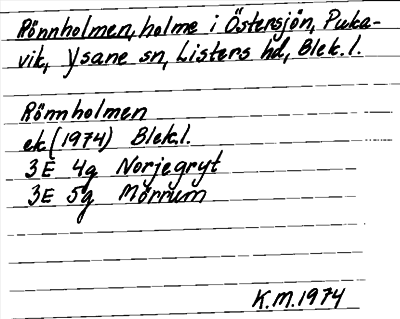 Rönnholmen, holme i Östersjön, Puka-
vik, Ysane sn, Listers hd, Blek. l.
Rönnholmen
ek. (1974) Blek. l.
3E 4g Norjegryt
3E 5g Mörrum
K.M. 1974